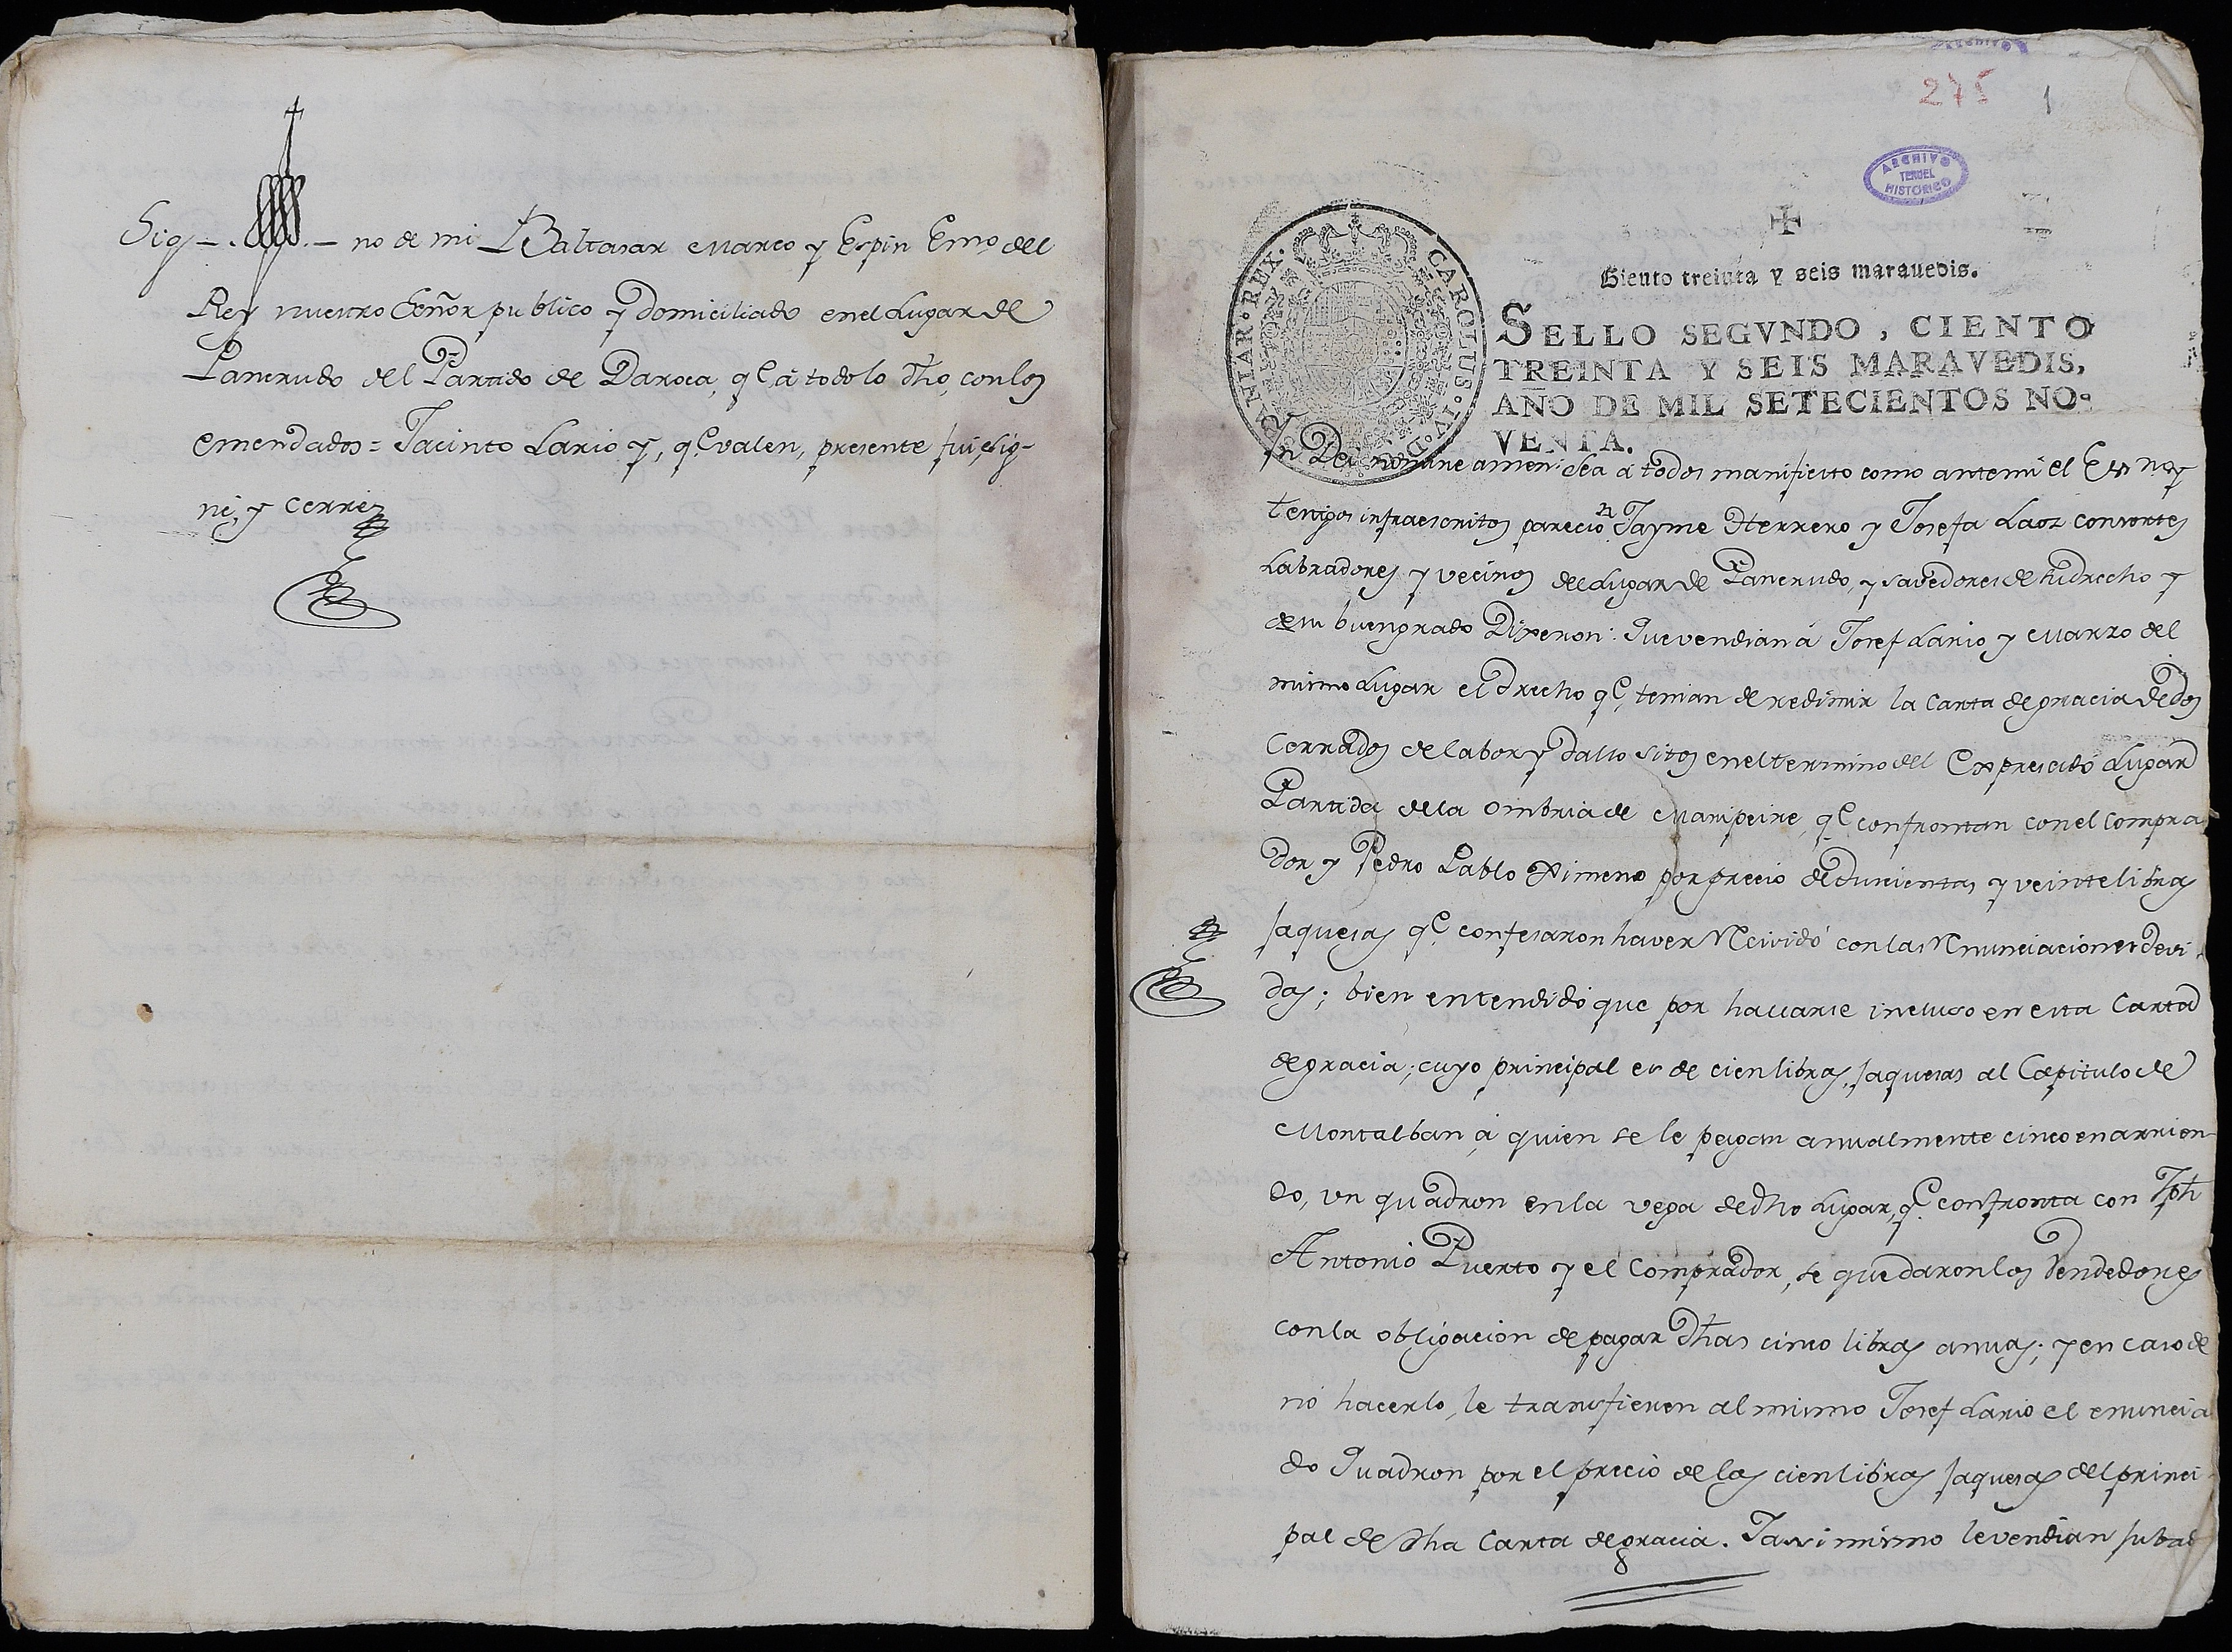 Sig — . — no de mi Baltasar Marco y Espin Esno del
Rey nuestro Señor publico y domiciliado en el Lugar de
Pancrudo del Partido de Daroca, qe, a todo lo dho, con los
emendados = Jacinto Lario y, qe valen, presente fui, sig-
né, y cerré
ARCHIVO
275 1
ARCHIVO
TERUEL
HISTÓRICO
CAROLUS · IV · D · G · HISPANIAR · REX ·
Ciento treinta y seis maravedis.
SELLO SEGVNDO, CIENTO
TREINTA Y SEIS MARAVEDIS,
AÑO DE MIL SETECIENTOS NO-
VENTA.
In Dei nomine amen: sea á todos manifiesto como ante mi el Esno y
testigos infraescritos pareciōn Jayme Herrero y Josefa Laoz consortes
Labradores y vecinos del Lugar de Pancrudo, y savedores de su drecho y
de su buen grado Dixeron: Que vendian á Josef Lario y Marzo del
mismo Lugar el drecho qe, tenian de redimir la Carta de gracia de dos
Cerrados de labor y dallo sitos en el termino del Expresado Lugar
Partida de la Ombria de Maripeire, qe confrontan con el Compra
dor y Pedro Pablo Ximeno por precio de duscientas y veinte libras
Jaquesas qe, confesaron haver Recivido con las Renunciaciones devi-
das; bien entendido que por hallarse incluso en esta Carta
de gracia, cuyo principal es de cien libras, Jaquesas al Capitulo de
Montalban, á quien se le pagan anualmente cinco en arrien-
do, un quadron en la vega de dho Lugar, qe confronta con Jph
Antonio Puerto y el Comprador, se quedaron los Vendedores
con la obligacion de pagar dhas cinco libras annuas; y en caso de
no hacerlo, le transfieren al mismo Josef Lario el enuncia
do Quadron por el precio de las cien libras Jaquesas del princi-
pal de dha Carta de gracia. Y assimismo le vendian